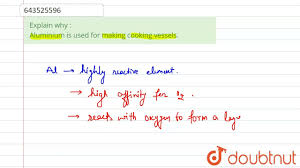 643525596
Explain why :
Aluminium is used for making cooking vessels.
Al → highly reactive element.
→ high affinity for O2.
→ reacts with oxygen to form a laye
doubtnut